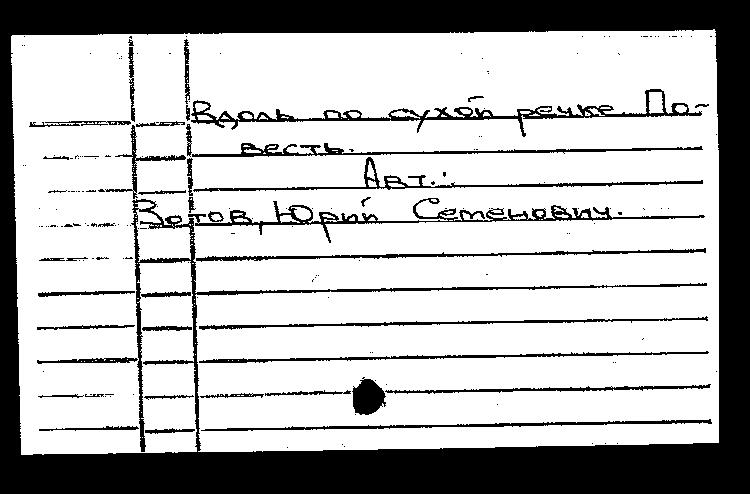 Вдоль по сухой речке. По-
весть.
Авт.:
Зотов, Юрий Семенович.